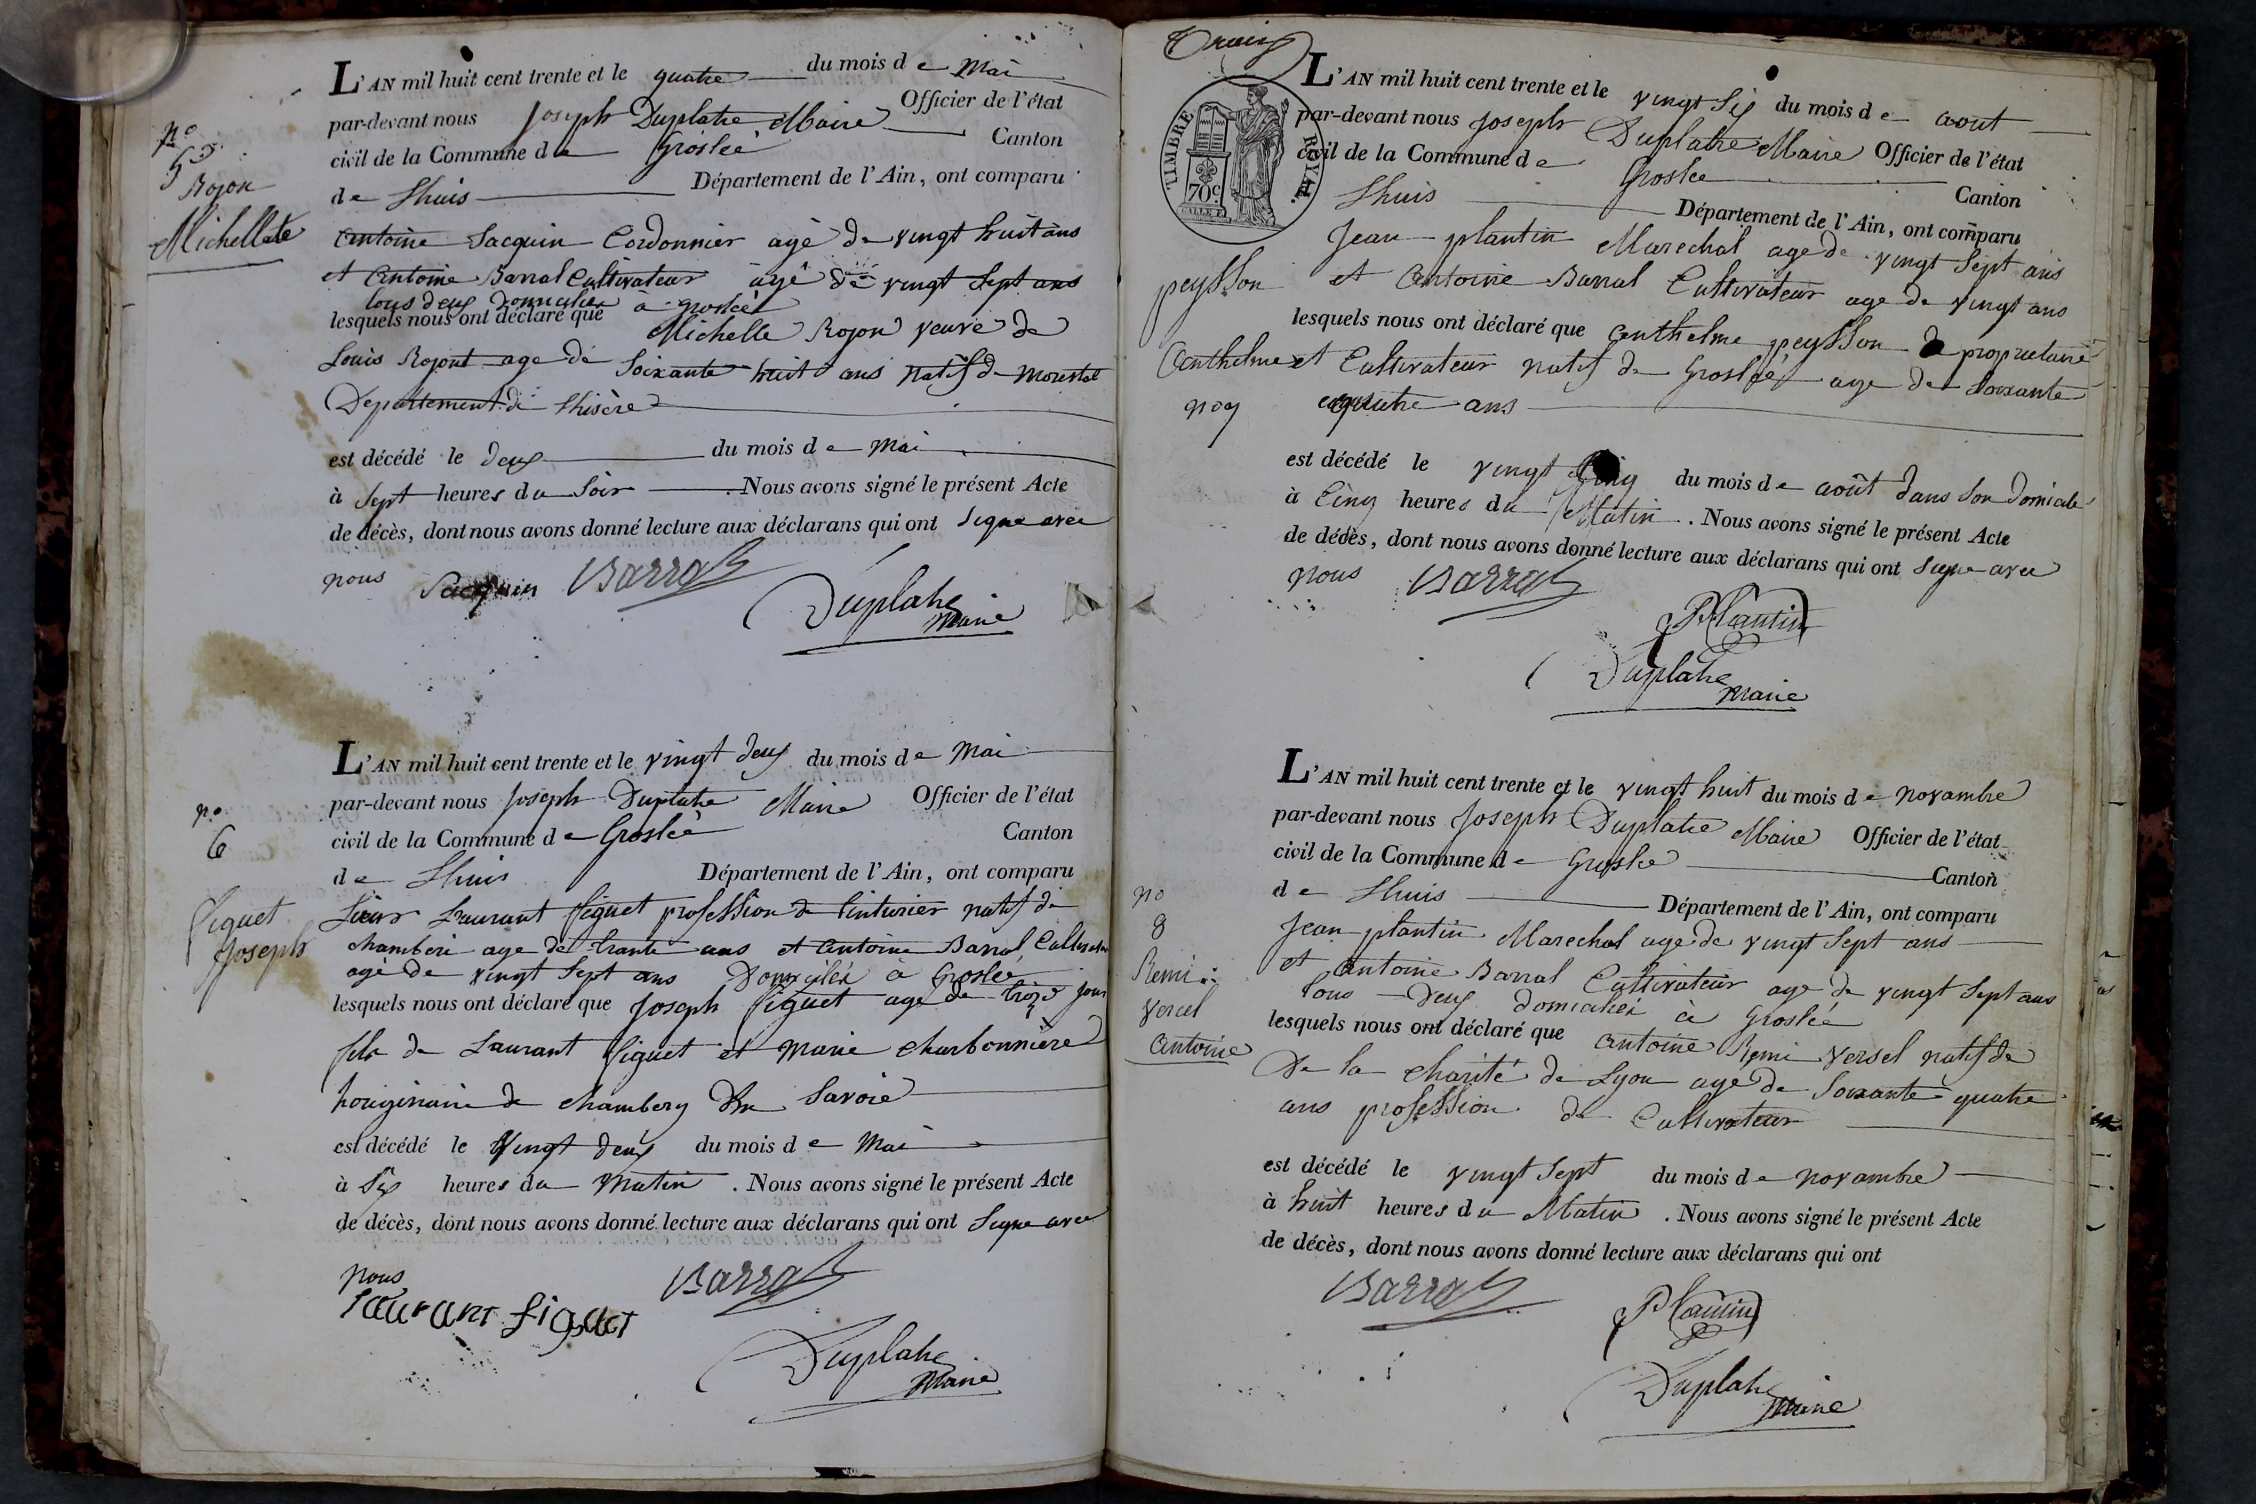 n.o
5
Rojon
Michellete
L'AN mil huit cent trente et le quatre du mois de Mai
par-devant nous Joseph Duplatre Maire Officier de l'état
civil de la Commune de Groslée Canton
de Lhuis Département de l'Ain, ont comparu
Antoine Jacquin Cordonnier agé de vingt huit ans
et Antoine Barral Cultivateur agé de vingt sept ans
tous deux domicilies a groslée
lesquels nous ont déclaré que Michelle Rojon veuve de
Louis Rojont age de Soixante huit ans natif de morestel
Département de Lhisère
est décédé le deux du mois de Mai
à sept heures du Soir . Nous avons signé le présent Acte
de décès, dont nous avons donné lecture aux déclarans qui ont signe avec
nous Jacquin Barral
Duplatre
Maire
n.o
6
figuet
Joseph
L'AN mil huit cent trente et le vingt deux du mois de Mai
par-devant nous Joseph Duplatre Maire Officier de l'état
civil de la Commune de Groslée Canton
de Lhuis Département de l'Ain, ont comparu
Sieur Laurant figuet profession de tinturier natif de
chamberi age de trante ans et antoine Barral Cultivateur
agé de vingt sept ans Domicilés à Groslée
lesquels nous ont déclaré que Joseph figuet age de treize jour
fils de Laurant figuet et Marie charbonnière
horiginaire de chambery En Savoie
est décédé le vingt deux du mois de Mai
à Six heures du Matin . Nous avons signé le présent Acte
de décès, dont nous avons donné lecture aux déclarans qui ont signe avec
nous Barral
laurant figuet
Duplatre
Maire
Trois
TIMBRE ROYAL
70c.
peysson
Anthelme
no 7
L'AN mil huit cent trente et le vingt Six du mois de aout
par-devant nous Joseph Duplatre Maire Officier de l'état
civil de la Commune de Groslée Canton
Lhuis Département de l'Ain, ont comparu
Jean plantin Marechal age de vingt sept ans
et Antoine Barral Cultivateur age de vingt ans
lesquels nous ont déclaré que Anthelme peysson proprietaire
et Cultivateur natif de Groslée age de soixante
quatre ans
est décédé le vingt Cinq du mois de août dans son Domicile
à Cinq heures du Matin . Nous avons signé le présent Acte
de décès, dont nous avons donné lecture aux déclarans qui ont signe avec
nous Barral
Plantin
Duplatre
Maire
no
8
Remi
Vercel
Antoine
L'AN mil huit cent trente et le vingt huit du mois de novambre
par-devant nous Joseph Duplatre Maire Officier de l'état
civil de la Commune de Groslée Canton
de Lhuis Département de l'Ain, ont comparu
Jean plantin Marechal age de vingt sept ans
et antoine Barral Cultivateur age de vingt sept ans
tous Deux domiciliés à Groslée
lesquels nous ont déclaré que antoine Remi Versel natif de
De la charité de Lyon age de soixante quatre
ans profession de Cultivateur
est décédé le vingt sept du mois de novambre
à huit heures du Matin . Nous avons signé le présent Acte
de décès, dont nous avons donné lecture aux déclarans qui ont
Barral Plantin
Duplatre
Maire